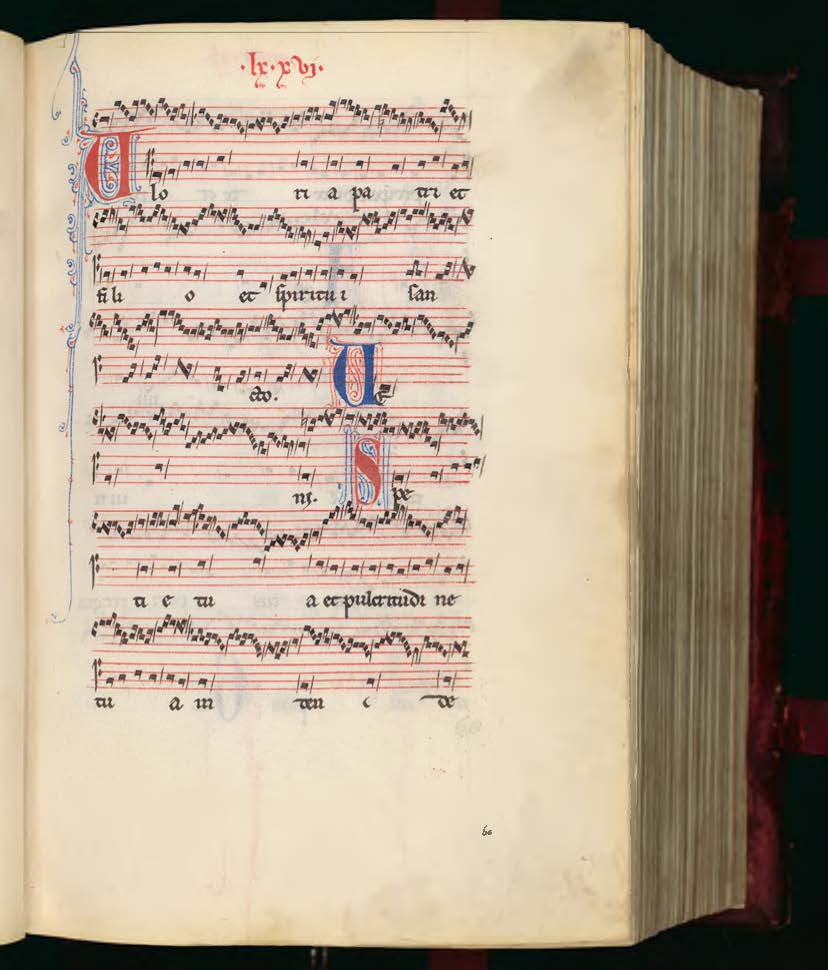 ·lx·xvj·
Glo ri a pa tri et
fi li o et spiritu i san
cto. Ue
ni. Spe
ti e tu a et pulcritudi ne
tu a in ten de